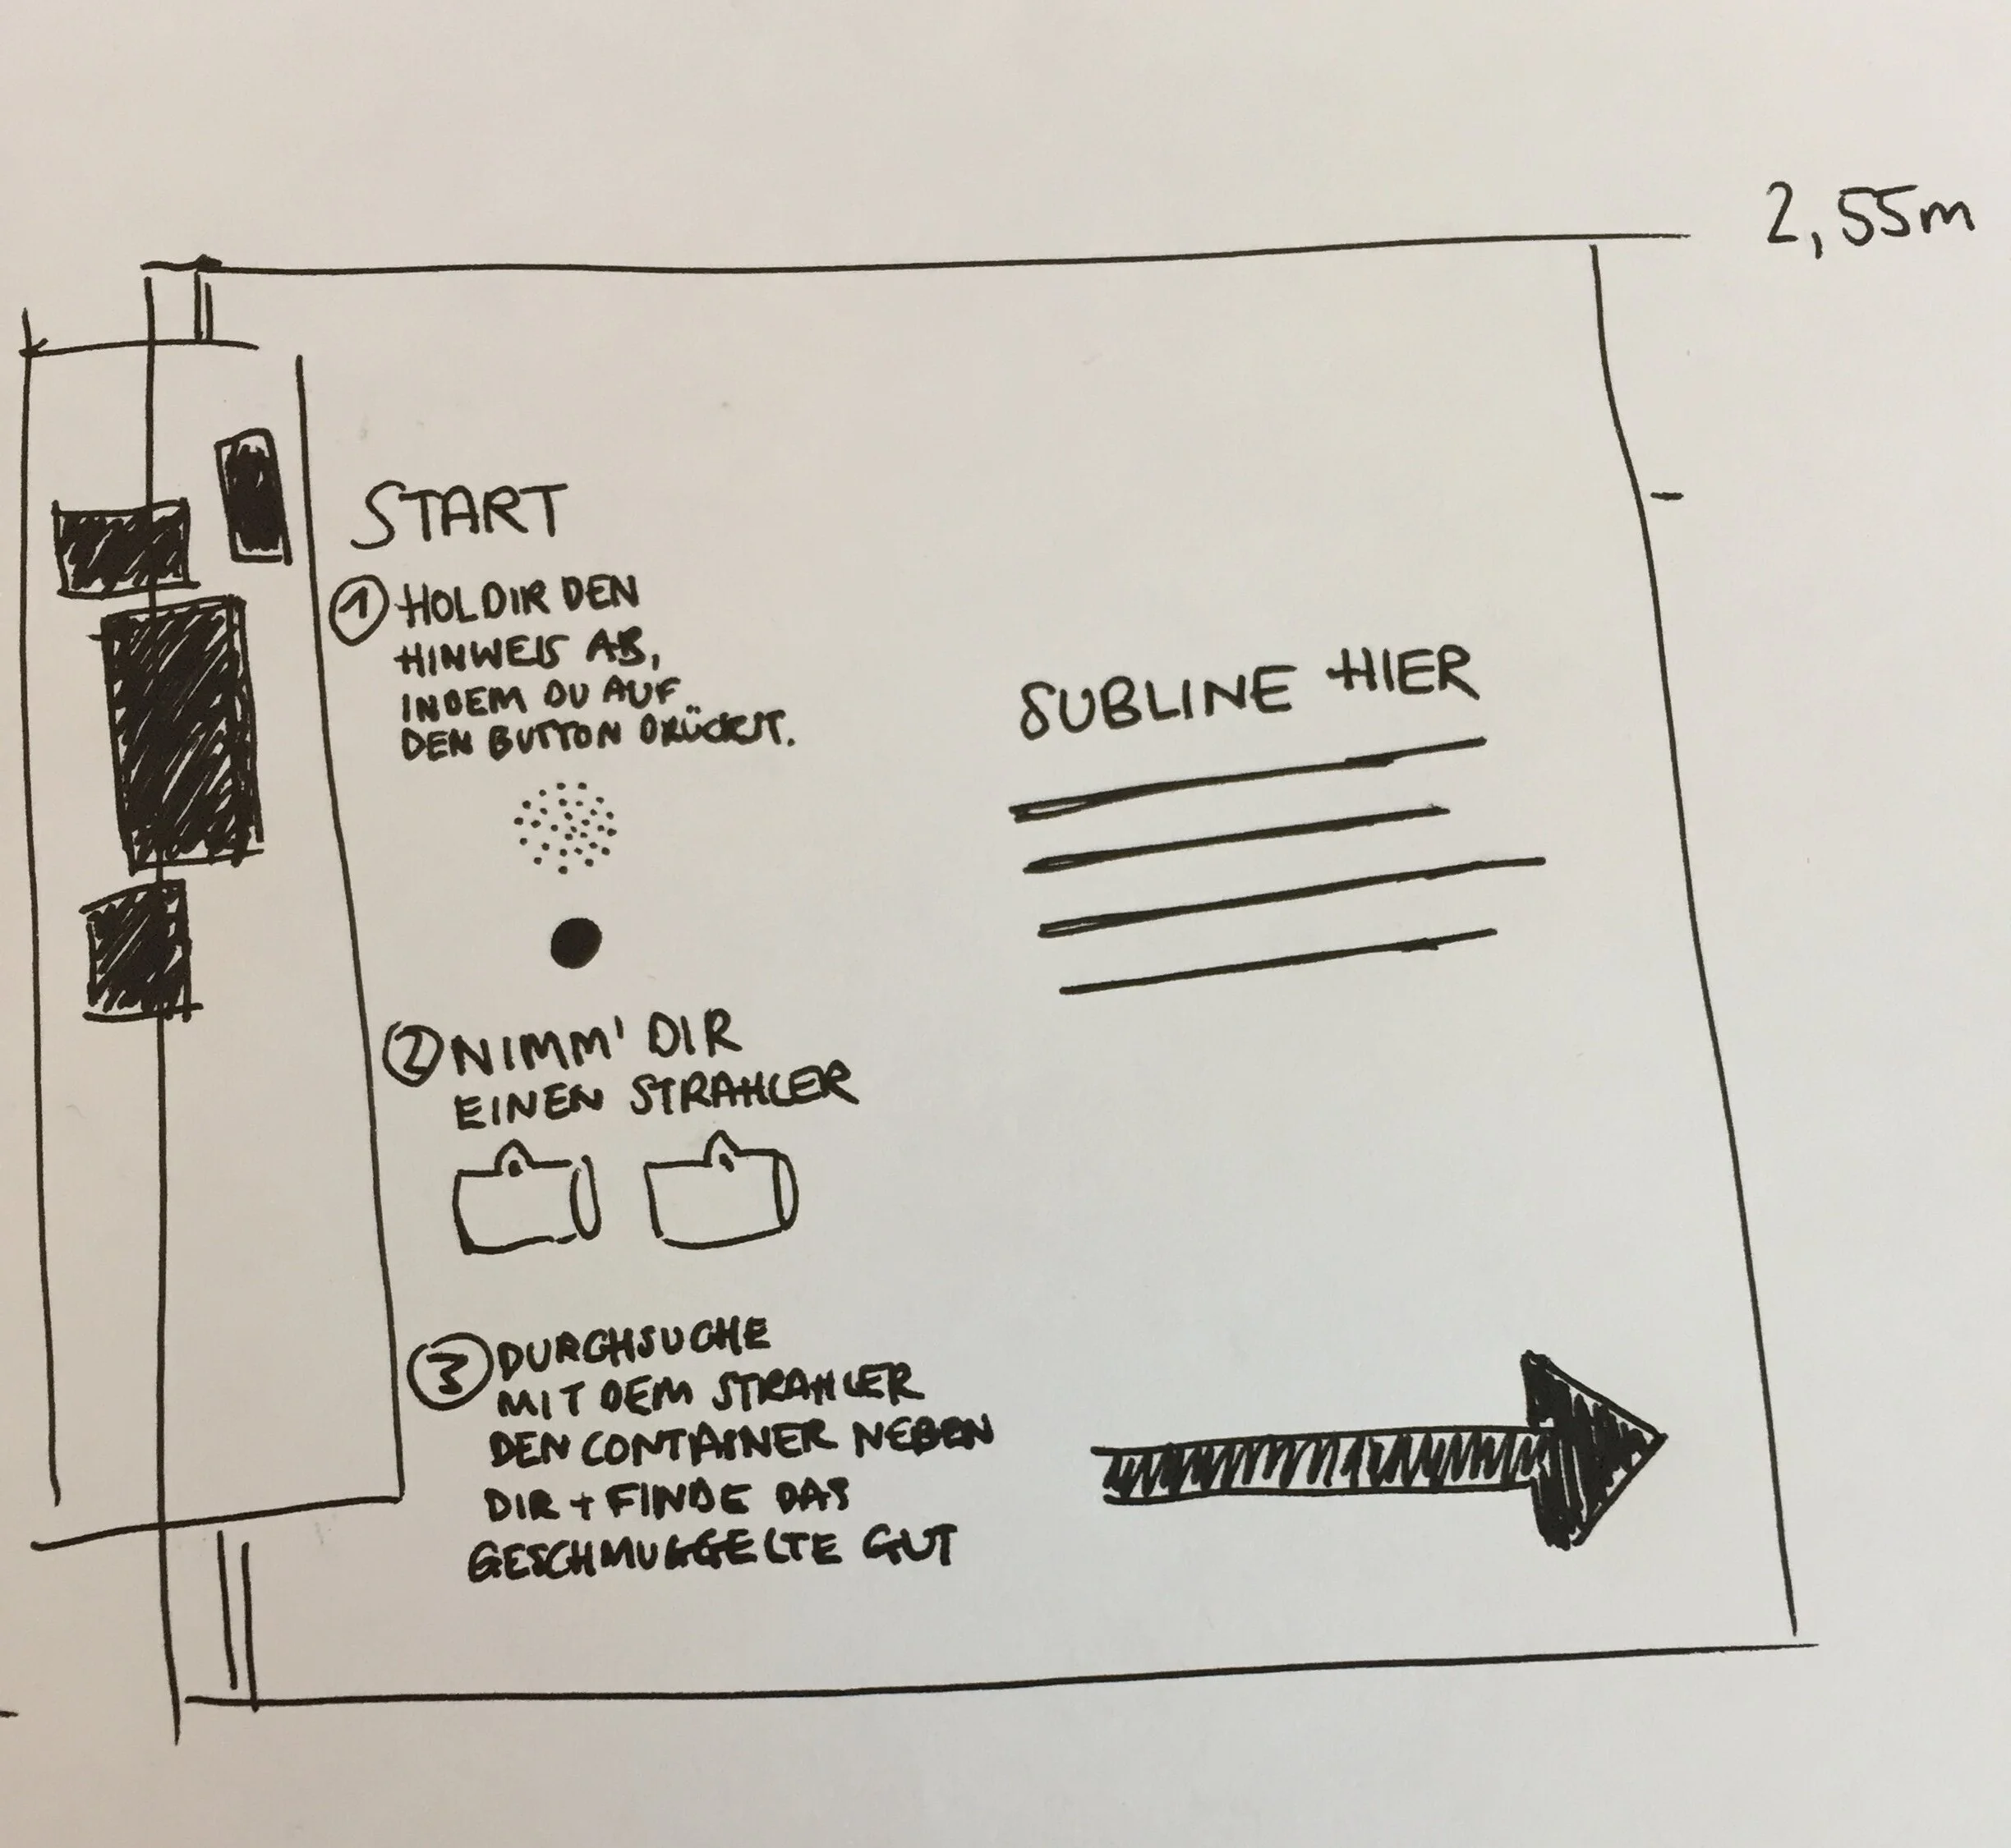 2,55m
START
① HOL DIR DEN
HINWEIS AB,
INDEM DU AUF
DEN BUTTON DRÜCKST.
SUBLINE HIER
② NIMM' DIR
EINEN STRAHLER
③ DURCHSUCHE
MIT DEM STRAHLER
DEN CONTAINER NEBEN
DIR + FINDE DAS
GESCHMUGGELTE GUT